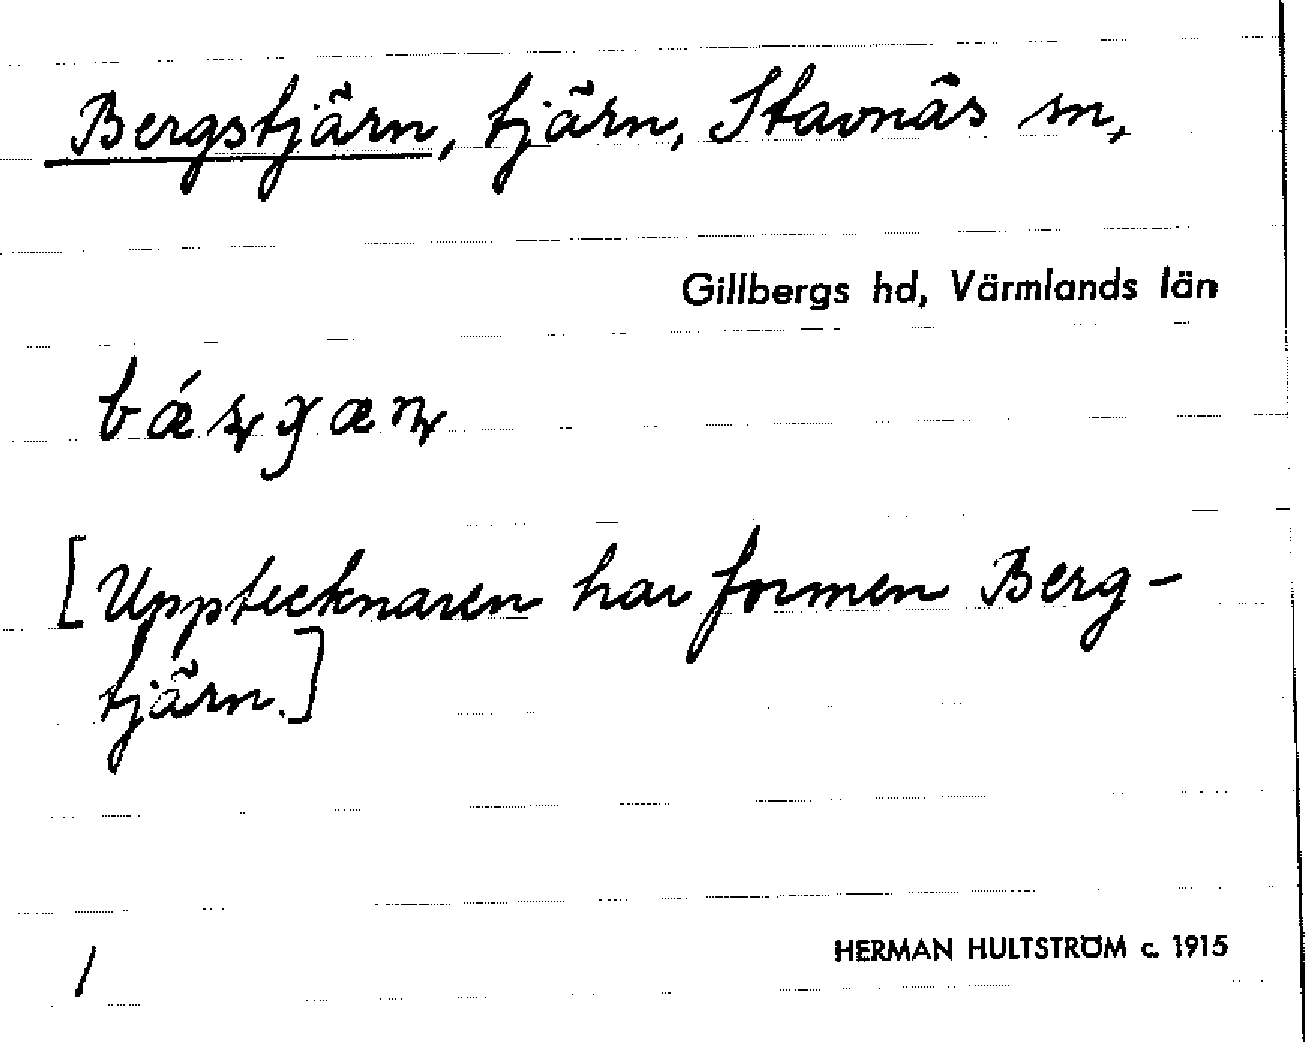 Bergstjärn, tjärn, Stavnäs sn,
Gillbergs hd, Värmlands län
[Upptecknaren har formen Berg-
tjärn.]
/
HERMAN HULTSTRÖM c. 1915